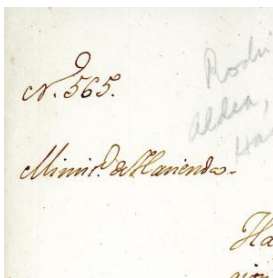 N.º 565.
Rodri
Aldea,
Ha
Minist.º de Hacienda.
Ha